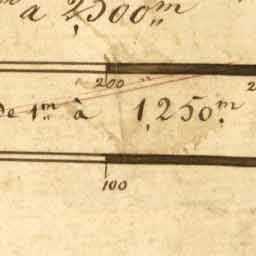 à 2,500.m
200
2
de 1.m à 1,250.m
100